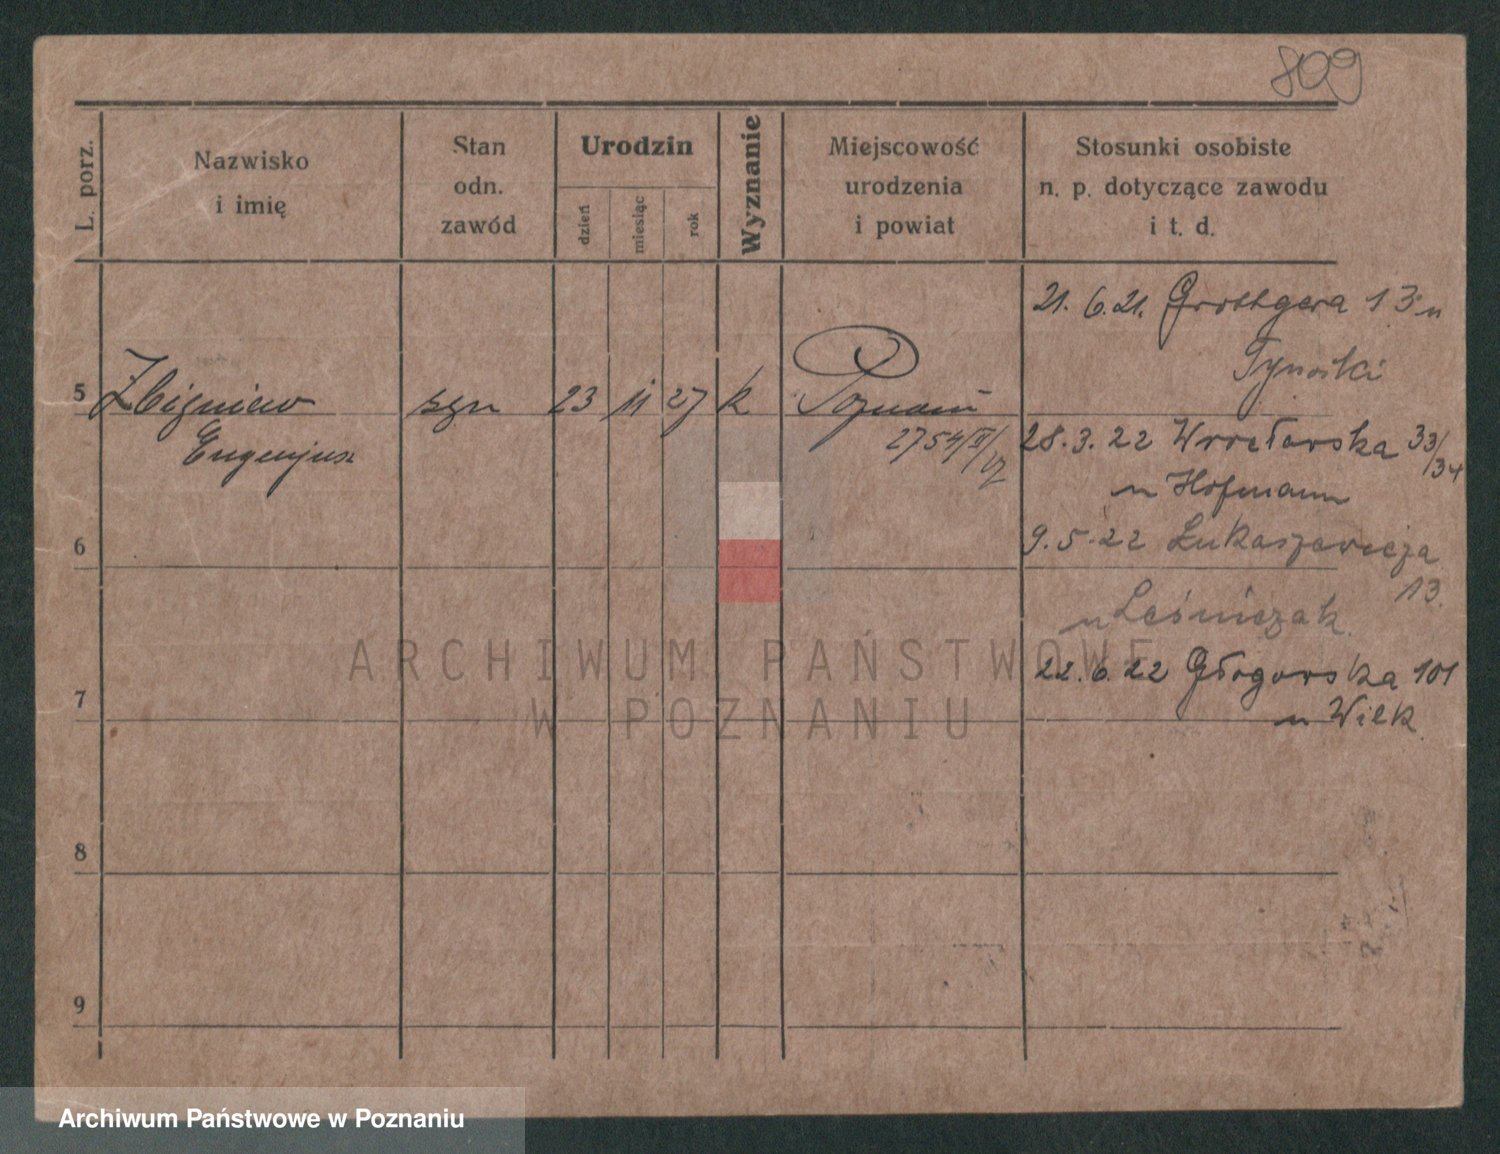 809
L. porz.
Nazwisko
i imię
Stan
odn.
zawód
Urodzin
dzień
miesiąc
rok
Wyznanie
Miejscowość
urodzenia
i powiat
Stosunki osobiste
n. p. dotyczące zawodu
i t. d.
21. 6. 21. Grottgera 13 u
5 Zbigniew syn 23 11 27 k Poznań
Eugenjusz
28. 3. 22 Wrocławska 33/34
u Hofmann
6
9. 5. 22 Łukaszewicza
13.
u Leśniczak
7
22. 6. 22 Głogowska 101
u Wilk
8
9
ARCHIWUM PAŃSTWOWE
W POZNANIU
Archiwum Państwowe w Poznaniu